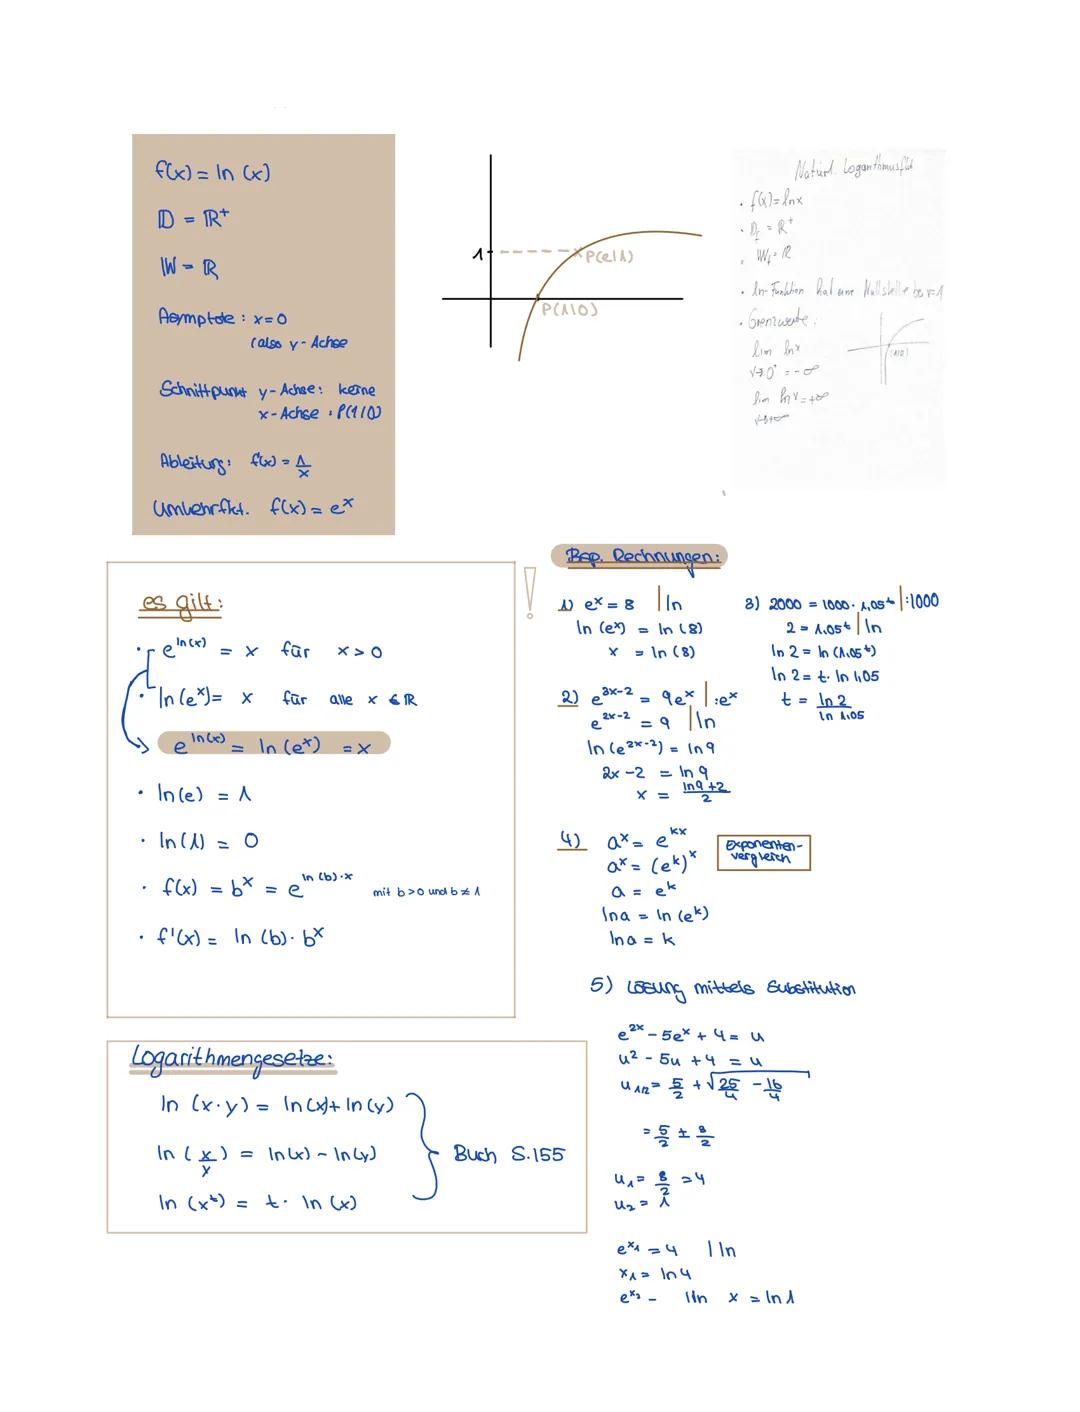 f(x) = ln (x)
𝔻 = ℝ⁺
𝕎 = ℝ
Asymptote : x=0
(also y-Achse
Schnittpunkt y-Achse: keine
x-Achse : P(1|0)
Ableitung: f'(x) = 1/x
Umkehrfkt. f(x) = eˣ
1
P(e|1)
P(1|0)
Natürl. Logarithmusfkt
• f(x)= lnx
• D_f = R⁺
• W_f = R
• ln-Funktion hat eine Nullstelle bei x=1
• Grenzwerte:
lim lnx
x→0⁺ = -∞
lim ln x = +∞
x→+∞
(1|0)
es gilt:
• e^ln(x) = x für x > 0
• ln(eˣ) = x für alle x ∈ ℝ
e^ln(x) = ln(eˣ) = x
• ln(e) = 1
• ln(1) = 0
• f(x) = bˣ = e^ln(b)·x mit b>0 und b≠1
• f'(x) = ln (b) · bˣ
!
Logarithmengesetze:
ln (x·y) = ln(x)+ ln(y)
ln (x/y) = ln(x) - ln(y)
ln (xᵗ) = t · ln (x)
Buch S.155
Bsp. Rechnungen:
1) eˣ = 8 | ln
ln (eˣ) = ln (8)
x = ln (8)
2) e^3x-2 = 9eˣ | :eˣ
e^2x-2 = 9 | ln
ln (e^2x-2) = ln 9
2x -2 = ln 9
x = ln9 +2/2
3) 2000 = 1000 · 1,05ᵗ | :1000
2 = 1,05ᵗ | ln
ln 2 = ln (1,05ᵗ)
ln 2 = t · ln 1,05
t = ln 2/ln 1,05
4) aˣ = e^kx
aˣ = (eᵏ)ˣ
a = eᵏ
ln a = ln (eᵏ)
ln a = k
Exponenten-
vergleich
5) Lösung mittels Substitution
e^2x - 5eˣ + 4 = u
u² - 5u + 4 = u
u1/2 = 5/2 + √25/4 - 16/4
= 5/2 ± 8/2
u₁ = 8/2 = 4
u₂ = 1
e^x₁ = 4 | ln
x₁ = ln 4
e^x₂ - | ln x = ln 1